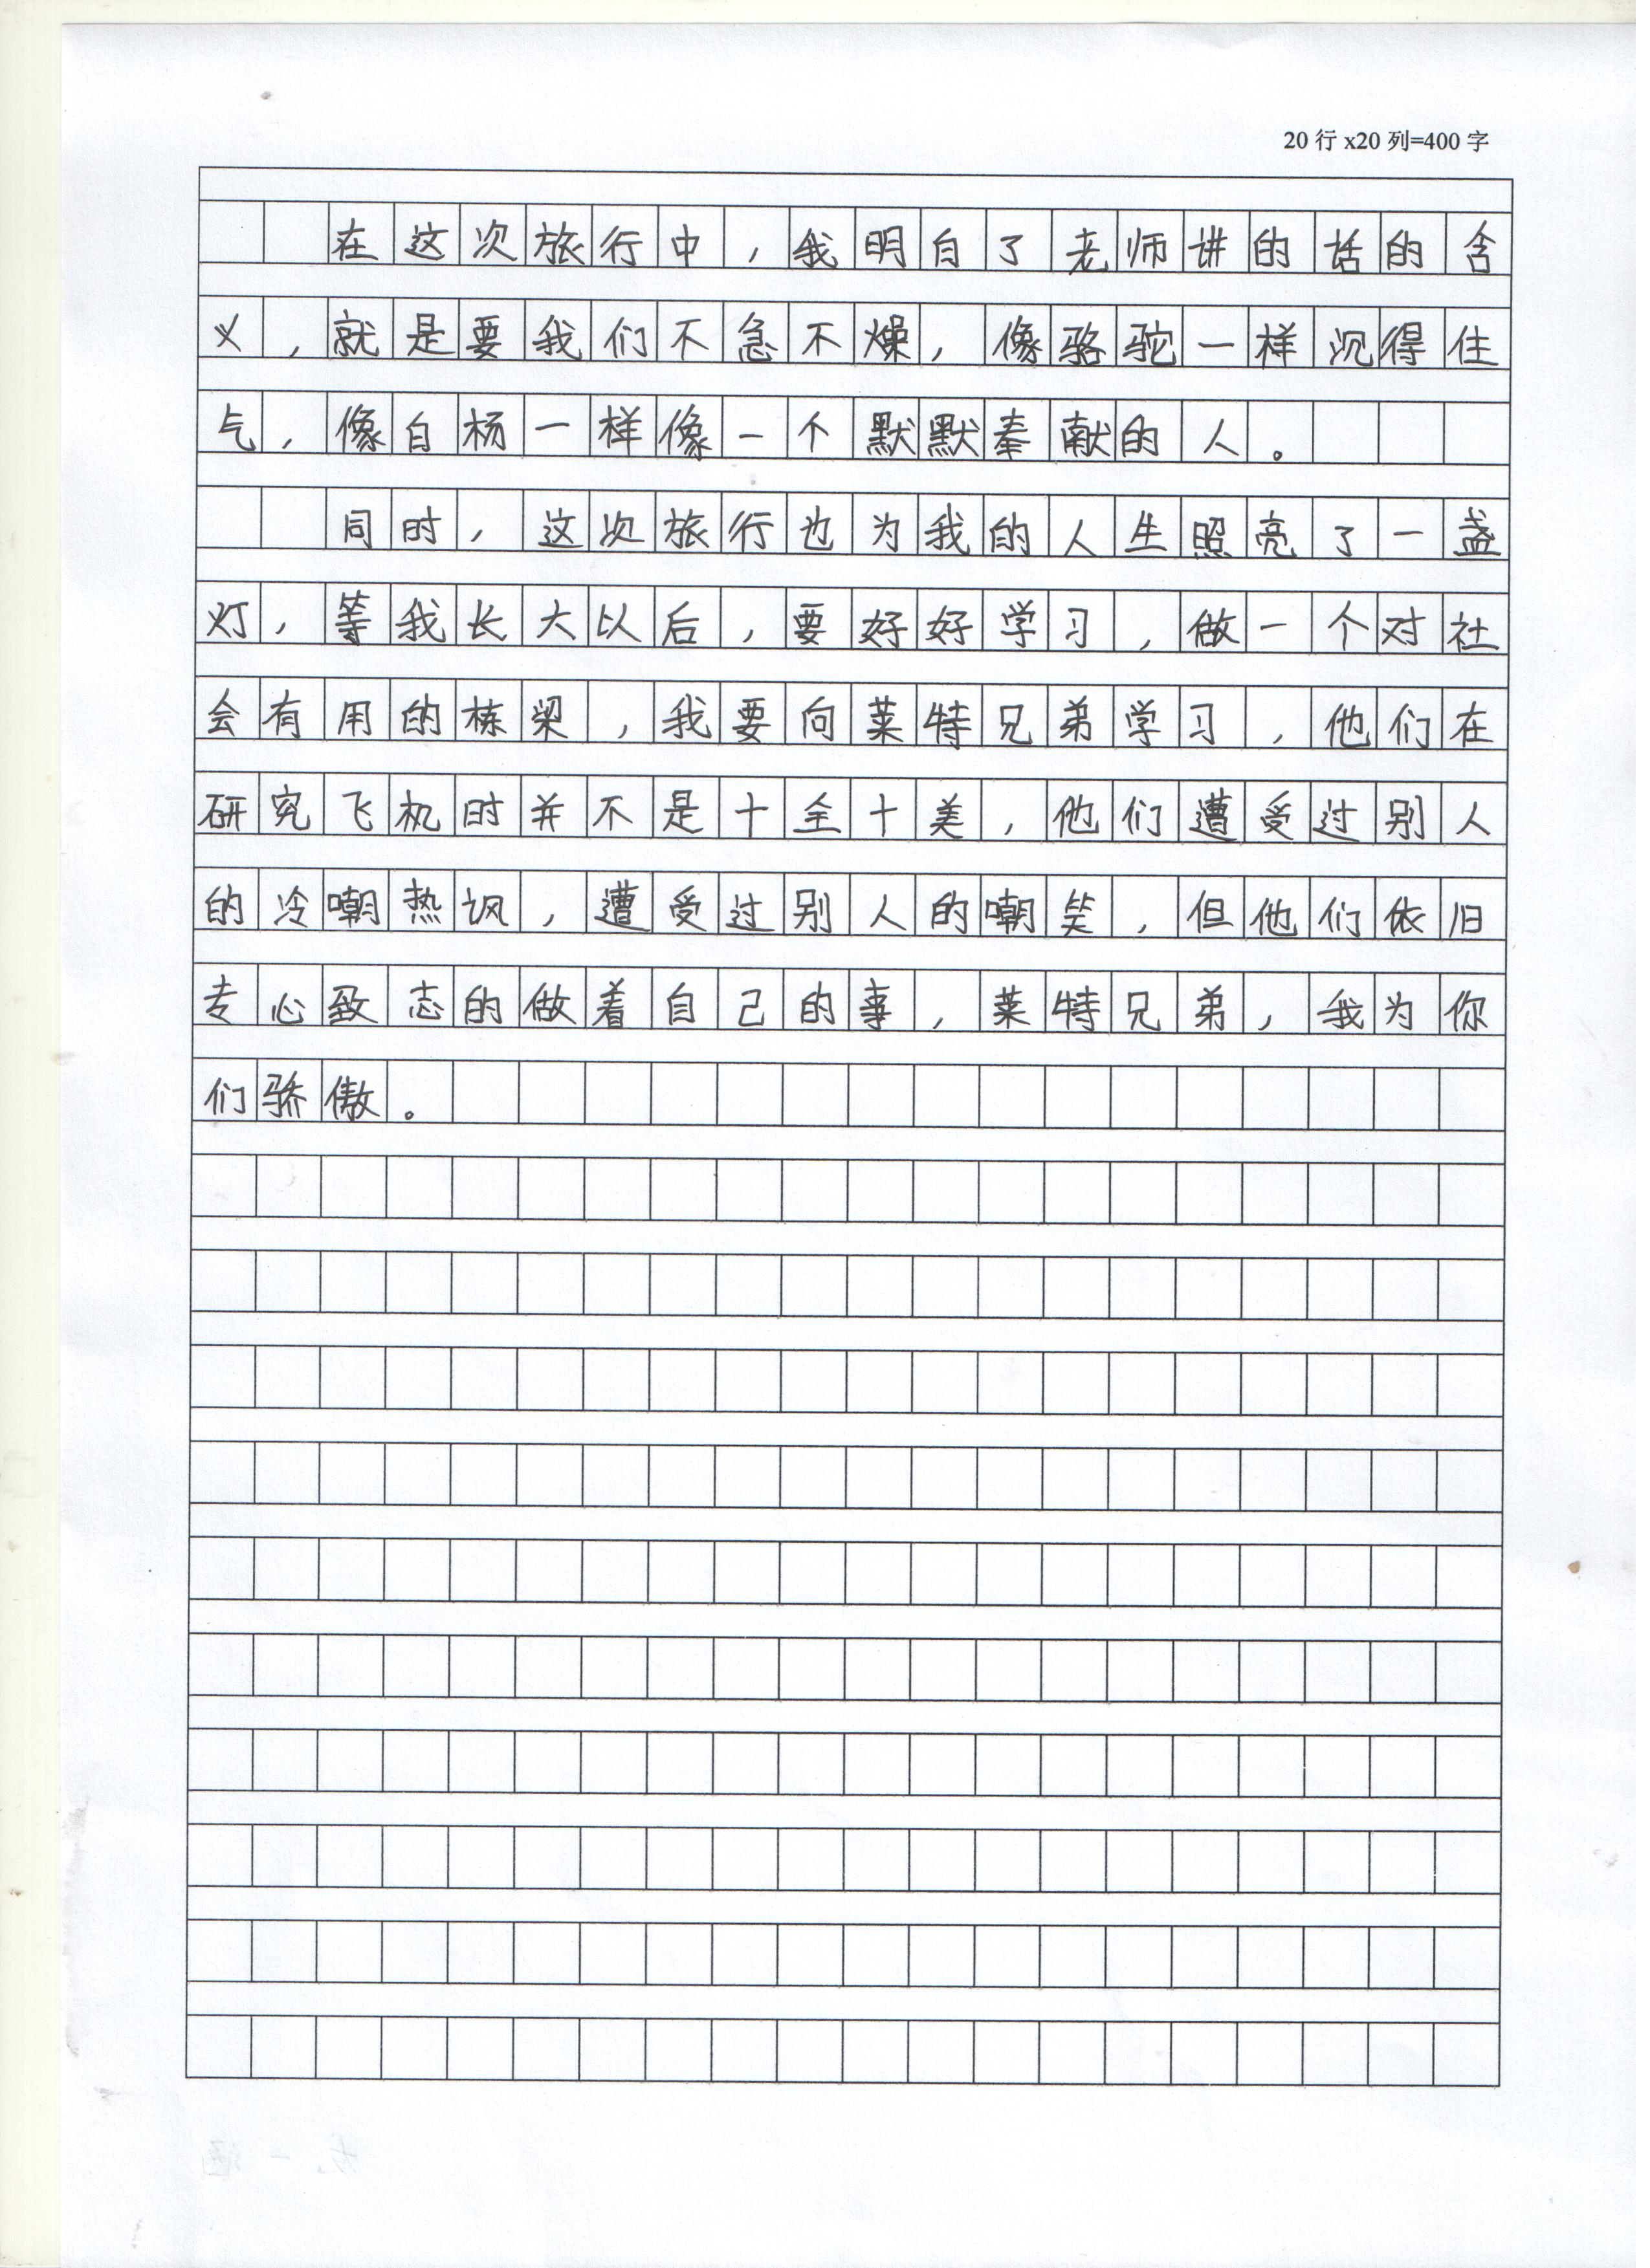 20 行 x20 列=400 字
在这次旅行中，我明白了老师讲的话的含
义，就是要我们不急不燥，像骆驼一样沉得住
气，像白杨一样像一个默默奉献的人。
同时，这次旅行也为我的人生照亮了一盏
灯，等我长大以后，要好好学习，做一个对社
会有用的栋梁，我要向莱特兄弟学习，他们在
研究飞机时并不是十全十美，他们遭受过别人
的冷嘲热讽，遭受过别人的嘲笑，但他们依旧
专心致志的做着自己的事，莱特兄弟，我为你
们骄傲。